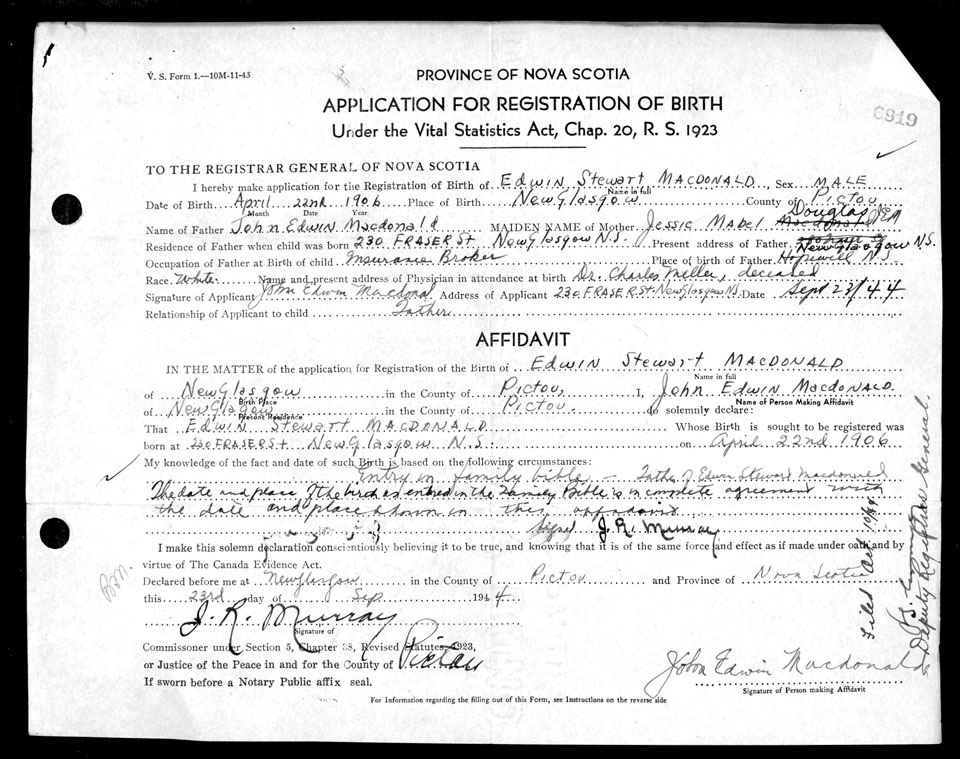 V. S. Form 1.—10M-11-43
PROVINCE OF NOVA SCOTIA
APPLICATION FOR REGISTRATION OF BIRTH
6919
Under the Vital Statistics Act, Chap. 20, R. S. 1923
TO THE REGISTRAR GENERAL OF NOVA SCOTIA
I hereby make application for the Registration of Birth of EDWIN Stewart MACDONALD, Sex MALE
Name in full
Date of Birth April 22nd 1906 Place of Birth New Glasgow County of Pictou
Month Date Year
Douglas JEM
Name of Father John Edwin Macdonald MAIDEN NAME of Mother Jessie Mabel
Residence of Father when child was born 230 FRASER St New Glasgow N.S. Present address of Father New Glasgow N.S.
Occupation of Father at Birth of child Broker Place of birth of Father Hopewell N.S.
Race White Name and present address of Physician in attendance at birth Dr. Charles Miller, deceased
Signature of Applicant John Edwin Macdonald Address of Applicant 230 FRASER St New Glasgow NS Date Sept 23/44
Relationship of Applicant to child Father
AFFIDAVIT
IN THE MATTER of the application for Registration of the Birth of EDWIN Stewart MACDONALD
Name in full
of New Glasgow in the County of Pictou, I, John Edwin Macdonald
Birth Place Name of Person Making Affidavit
of New Glasgow in the County of Pictou. do solemnly declare:
Present Residence
That EDWIN Stewart MACDONALD Whose Birth is sought to be registered was
born at 230 FRASER St New Glasgow N.S. on April 22nd 1906
My knowledge of the fact and date of such Birth is based on the following circumstances:
Entry in family bible — Father of Edwin Stewart Macdonald
The date and place of the birth as entered in the Family Bible is in complete agreement with
the date and place shown in this affadavit
Signed J. R. Murray
I make this solemn declaration conscientiously believing it to be true, and knowing that it is of the same force and effect as if made under oath and by
virtue of The Canada Evidence Act.
Declared before me at New Glasgow in the County of Pictou and Province of Nova Scotia
this 23rd day of Sep 1944
J. R. Murray
Signature of
Commissioner under Section 5, Chapter 38, Revised Statutes, 1923,
or Justice of the Peace in and for the County of Pictou
If sworn before a Notary Public affix seal.
John Edwin Macdonald
Signature of Person making Affidavit
For Information regarding the filling out of this Form, see Instructions on the reverse side
Filed Oct 10/44
Deputy Registrar General.